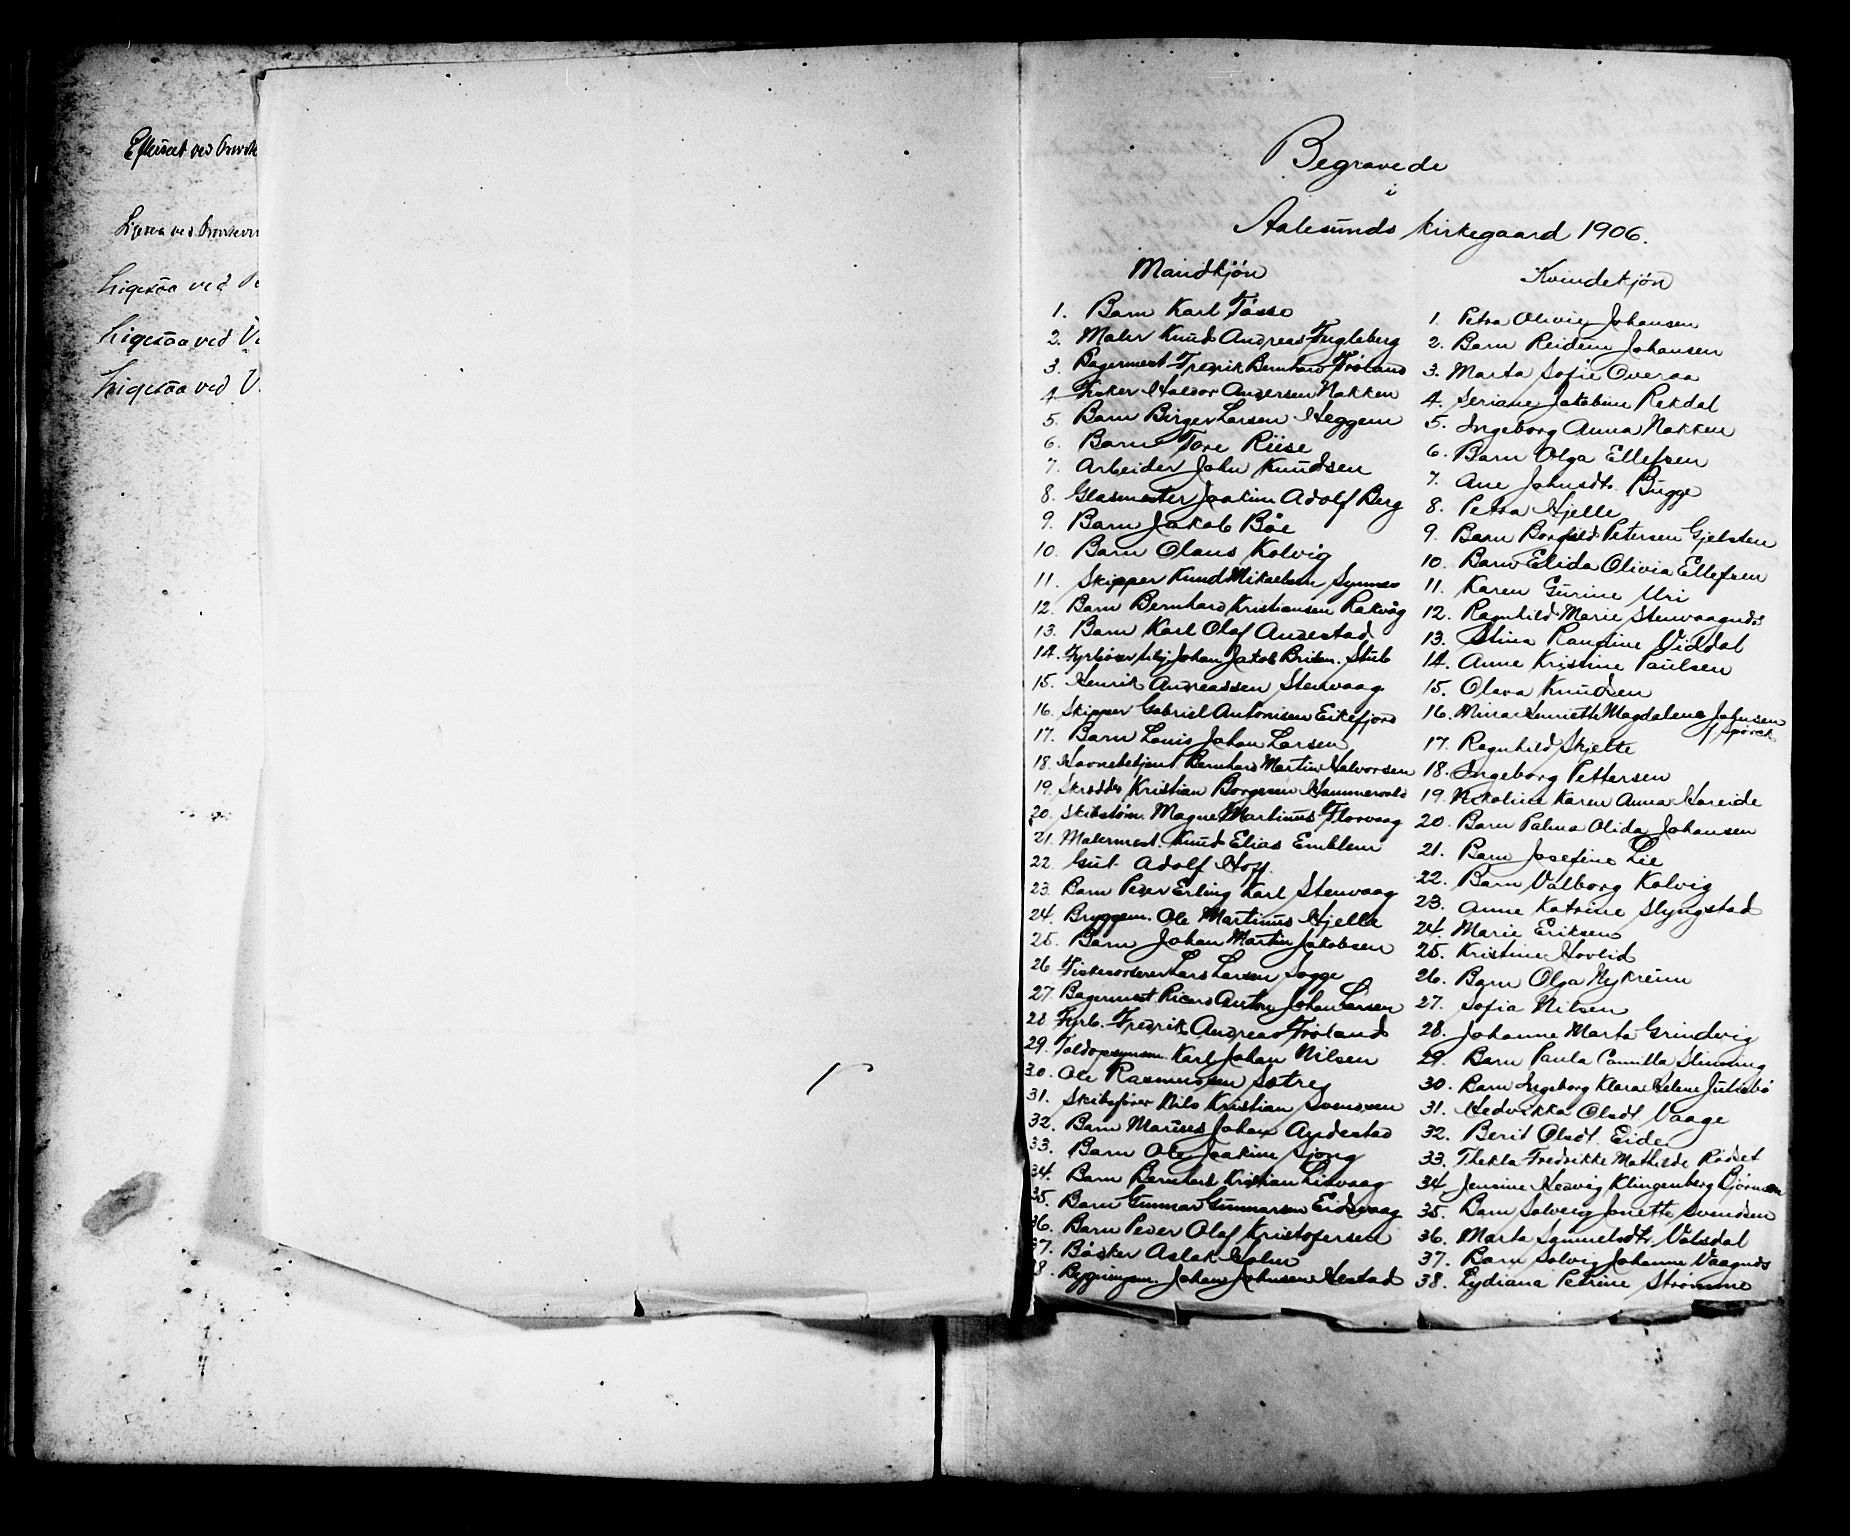 Efterseet ved
Ligesaa ved
Ligesaa ved
Ligesaa ved
Ligesaa ved
Begravede
i
Aalesunds kirkegaard 1906.
Mandkjøn
1. Barn Karl Tösse
2. Maler Knud Andreas Fugleberg
3. Bagermest. Fredrik Bernhard Fröland
4. Fisker Haldor Andersen Nakken
5. Barn Birger Larsen Heggem
6. Barn Tore Riise
7. Arbeider John Knudsen
8. Glasmester Joakim Adolf Berg
9. Barn Jakob Böe
10. Barn Olaus Kolvig
11. Skipper Knud Mikaelsen Synnes
12. Barn Bernhard Kristiansen Rakvåg
13. Barn Karl Olaf Andestad
14. Fyrböter Johan Jakob Stub
15. Henrik Andreassen Stenvaag
16. Skipper Gabriel Antonisen Eikefjord
17. Barn Louis Johan Larsen
18. Havnebetjent Bernhard Martin Halvorsen
19. Skrædder Kristian Borgesen Hammersvold
20. Skibstöm. Magne Martinus Florvaag
21. Malermest. Knud Elias Emblem
22. Gut Adolf Hoff
23. Barn Peder Erling Karl Stenvaag
24. Bryggem. Ole Martinus Hjelle
25. Barn Johan Martin Jakobsen
26. Lars Larsen Sogge
27. Bagermest Ricard Anton Johan Larsen
28. Fyrb. Fredrik Andreas Fröland
29. Toldopsynsm. Karl Johan Nilsen
30. Ole Rasmussen Sætre
31. Skibsförer Nils Kristian
32. Barn Marius Johan Andestad
33. Barn Ole Joakim Sjong
34. Barn Bernhard Kristian Lidvaag
35. Barn Gunnar Gunnarsen Eidsvaag
36. Barn Peder Olaf Kristofersen
37. Bödker Aslak Holm
8. Bygningsm. Johan Johnsen Hestad
Kvindekjön
1. Petra Olivie Johansen
2. Barn Reidun Johansen
3. Marta Sofie Overaa
4. Seriane Jakobine Rekdal
5. Ingeborg Anna Nakken
6. Barn Olga Ellefsen
7. Ane Johnsdt. Bugge
8. Petra Hjelle
9. Barn Borghild Petersen Gjelsten
10. Barn Elida Olivia Ellefsen
11. Karen Gurine Uri
12. Ragnhild Marie Stenvaagnes
13. Stina Randine Viddal
14. Anne Kristine Paulsen
15. Olava Knudsen
16. Mina Henriette Magdalena Johnsen
f. Spörck
17. Ragnhild Skjelte
18. Ingeborg Pettersen
19. Nikoline Karen Anna Hareide
20. Barn Palma Olida Johansen
21. Barn Josefine Lie
22. Barn Valborg Kolvig
23. Anne Katrine Slyngstad
24. Marie Eriksen
25. Kristine Hovlid
26. Barn Olga Nykreim
27. Sofia Nilsen
28. Johanne Marta Grindvig
29. Barn Paula Camilla Slinning
30. Barn Ingeborg Klara Helene Julsebö
31. Hedvikka Olsdt Vaage
32. Berit Olsdt. Eide
33. Thekla Fredrikke Mathilde Rödset
34. Jensine Hedvig Klingenberg Björnsen
35. Barn Solveig Jonette Svendsen
36. Marta Samuelsdtr. Vatsdal
37. Barn Solvig Johanne Vaagnes
38. Lydiana Petrine Strömme